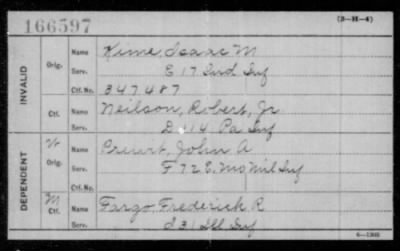 166597
(3-H-4)
INVALID
Orig.
Name Kime, Isaac M
Serv. E 17 Ind Inf
Ctf. No. 347487
Ctf.
Name Neilson, Robert, Jr
Serv. D 214 Pa Inf
DEPENDENT
W Orig.
Name Pruwt, John A
Serv. F 72 E. Mo Mil Inf
M Ctf.
Name Fargo Frederick R
Serv. I 31 Ill Inf
6—1202